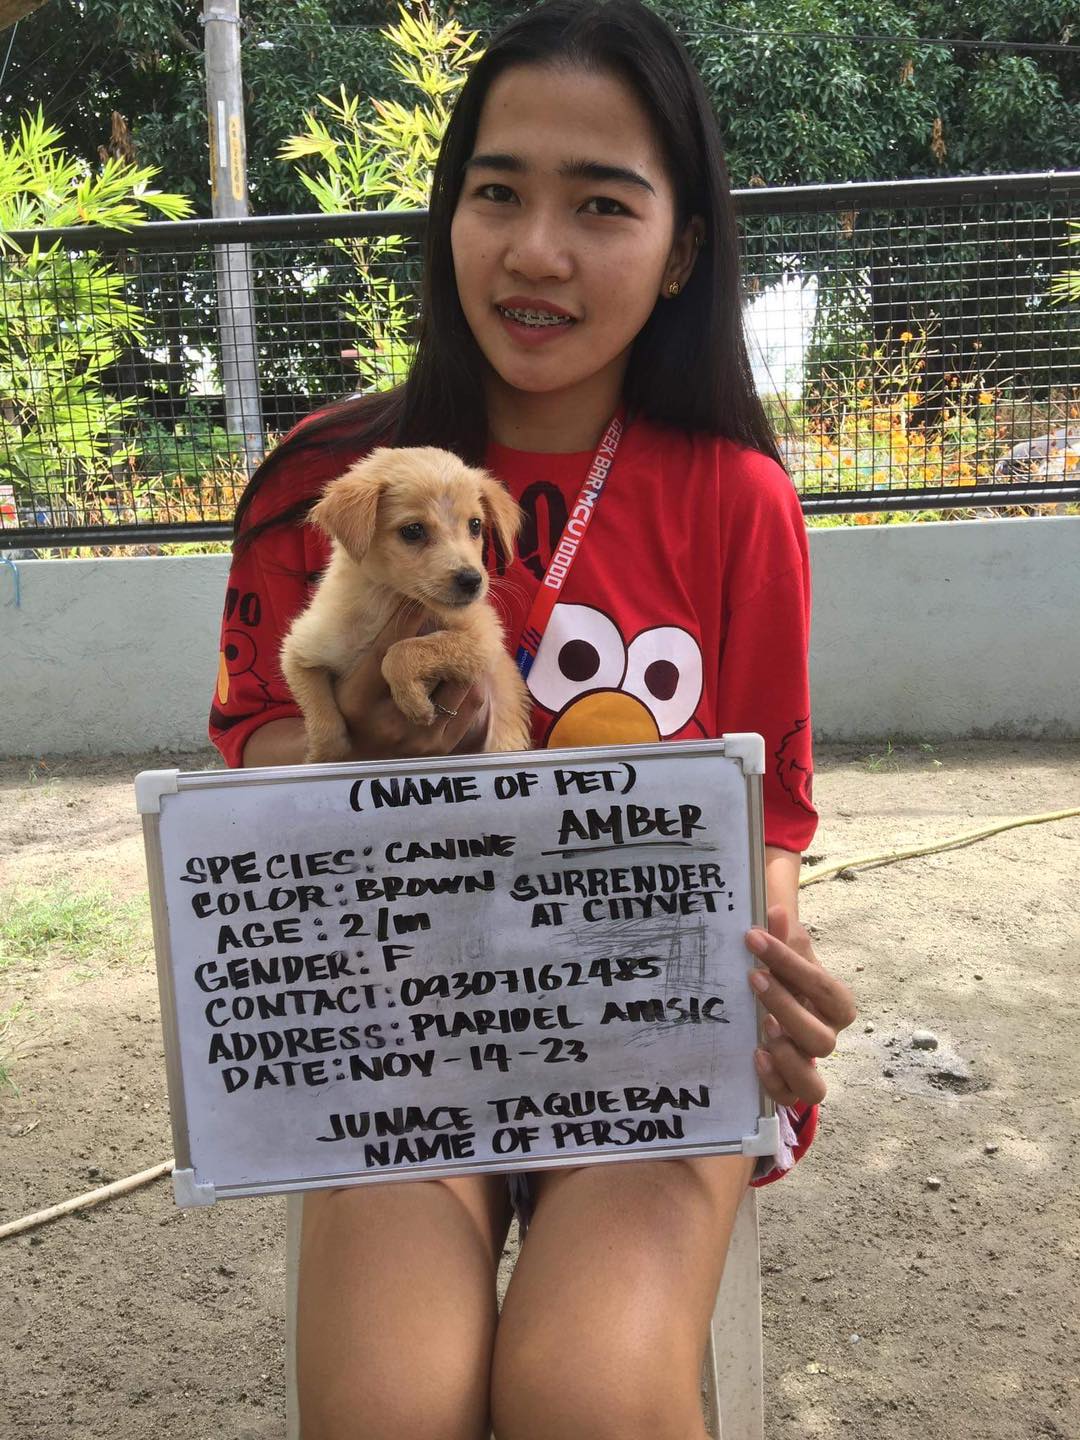 GEEK BAR MCU10000
(NAME OF PET)
AMBER
SPECIES: CANINE
COLOR: BROWN
SURRENDER
AT CITYVET:
AGE: 2/m
GENDER: F
CONTACT: 09307162485
ADDRESS: PLARIDEL AMSIC
DATE: NOV-14-23
JUNACE TAQUEBAN
NAME OF PERSON